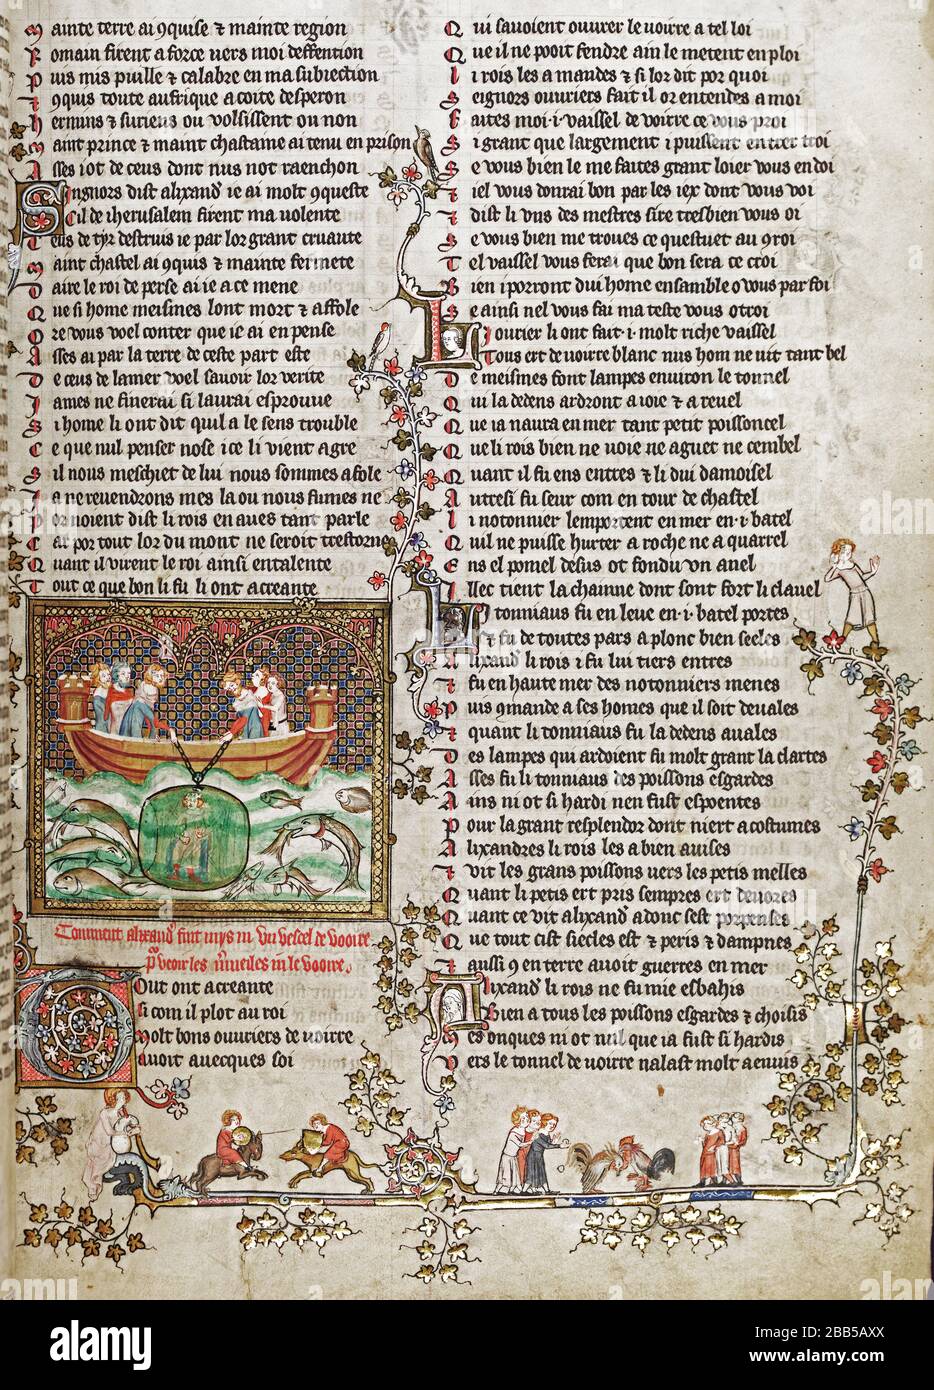 Mainte terre ai 9quise ⁊ mainte region
Romain firent a force vers moi deffention
Puis mis puille ⁊ calabre en ma subiection
⁊ 9quis toute aufrique a coite desperon
hermins ⁊ suriens ou volsissent ou non
Maint prince ⁊ maint chastaine ai tenu en prison
Asses iot de ceus dont nus not raenchon
Singnors dist alixand' ie ai molt 9queste
Cil de iherusalem firent ma volente
Ceus de tyr destruis ie par lor grant cruaute
Maint chastel ai 9quis ⁊ mainte fermete
Daire le roi de perse ai ie a ce mene
Que si home meismes lont mort ⁊ afole
Ore vous voel conter que ie ai en pense
Asses ai par la terre de ceste part este
De ceus de la mer voel savoir lor verite
Iames ne finerai si laurai esprouve
Si home li ont dit qui la le sens trouble
Ce que nul penser nose ice li vient a gre
Sil nous meschiet de lui nous sommes afole
Ia ne revendrons mes la ou nous fumes ne
Por noient dist li rois en aves tant parle
Car por tout lor du mont ne seroit trestorne
Quant il virent le roi ainsi entalente
Tout ce que bon li fu li ont acreante
Comment alixand' fuit mys in vn vescel de voirre
Out ont acreante
Si com il plot au roi
Molt bons ouvriers de voirre
Avoit avecques soi
Qui savoient ouvrer le voirre a tel loi
Que il ne pooit fendre ain le metent en ploi
Li rois les a mandes ⁊ si lor dit por quoi
Seignors ouvriers fait il or entendes a moi
Faites moi .i. vaissel de voirre ce vous proi
Si grant que largement i puissent entrer troi
Se vous bien le me faites grant loier vous en doi
⁊ iel vous donrai bon par les iex dont vous voi
⁊ dist li vns des mestres sire tres bien vous oi
Se vous bien me troues ce questuet au 9roi
Tel vaissel vous ferai que bon sera ce croi
Bien i porront dui home ensamble o vous par foi
Se ainsi nel vous fai ma teste vous otroi
Li ourier li ont fait .i. molt riche vaissel
Tous ert de voirre blanc nus hom ne uit tant bel
De meismes font lampes environ le tonnel
Qui la dedens ardront a ioie ⁊ a revel
Que ia naura en mer tant petit poissoncel
Que li rois bien ne voie ne aguet ne cembel
Quant il fu ens entres ⁊ li dui damoisel
Autresi fu seur com en tour de chastel
Li notonnier lemportent en mer en .i. batel
Quil ne puisse hurter a roche ne a quarrel
Ens el pomel desus ot fondu vn anel
Illec tient la chainne dont sont fort li clauel
Li tonniaus fu en leue en .i. batel portes
⁊ fu de toutes pars a plonc bien seeles
Alixand' li rois i fu lui tiers entres
⁊ fu en haute mer des notonniers menes
Puis 9mande a ses homes que il soit deuales
⁊ quant li tonniaus fu la dedens auales
Des lampes qui ardoient fu molt grant la clartes
Asses fu li tonniaus des poissons esgardes
Ains ni ot si hardi nen fust espoentes
Pour la grant resplendor dont niert acostumes
Alixandres li rois les a bien auises
⁊ vit les grans poissons vers les petis melles
Quant li petis ert pris sempres ert deuores
Quant ce vit alixand' adonc sest porpenses
Que tout cist siecles est ⁊ peris ⁊ dampnes
⁊ aussi 9 en terre avoit guerres en mer
Alixand' li rois ne fu mie esbahis
Bien a tous les poissons esgardes ⁊ choisis
Mes onques ni ot nul que ia fust si hardis
Vers le tonnel de voirre nalast molt a envis
alamy
Image ID: 2BB5AXX
www.alamy.com